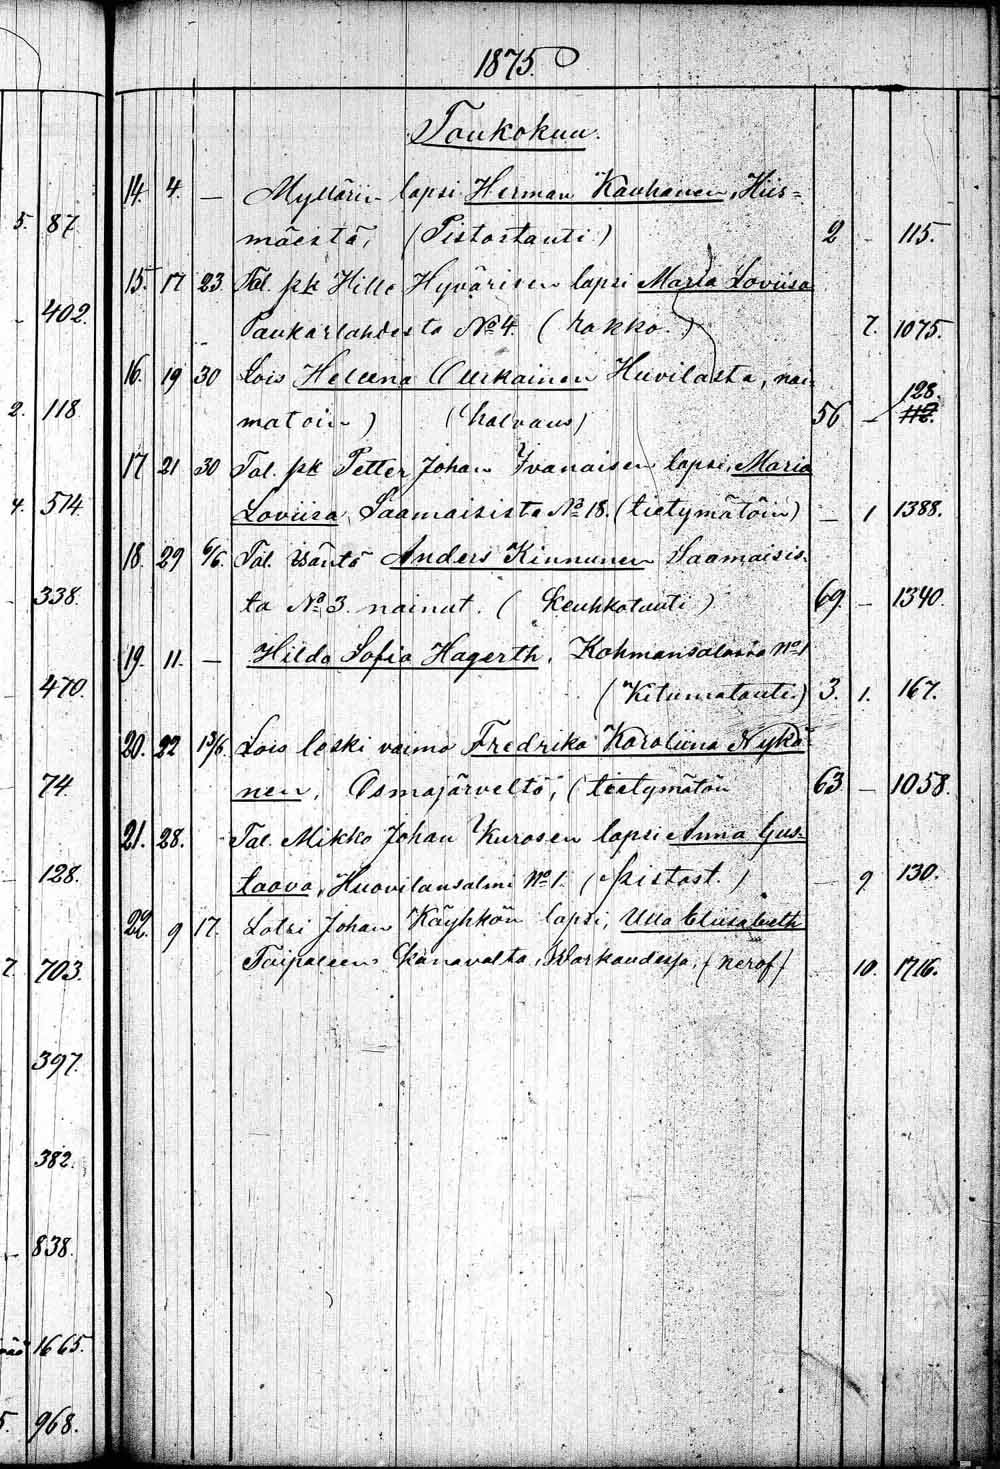 1875.
Toukokuu.
14. 4. — Myllärin lapsi Herman Kauhanen, Hiis-
5. 87. mäestä, (Pistostauti) 2 – 115.
15. 17 23. Tal. pk Hille Hyvärisen lapsi Maria Loviisa
402. Paukarlahdesta No 4. (rokko.) 7. 1075.
16. 19 30 Lois Heleena Aurkainen Huvilasta, nai-
128.
2. 118. matoin) (halvaus) 56 – 112.
17 21 30 Tal. pk Petter Johan Ivanaisen lapsi, Maria
4. 514. Loviisa, Saamaisista No 18. (tietymätöin) — 1 1388.
18. 29 6/6. Tal. isäntä Anders Kinnunen Saamaisis-
338. ta No 3. nainut. (Keuhkotauti) 69. – 1340.
19. 11. — Hilda Sofia Hagerth, Kohmansalosta No 1
470. (Kitumatauti.) 3. 1. 167.
20. 22 13/6. Lois leski vaimo Fredrika Karoliina Nykä-
74. nen, Osmajärveltä, (tietymätön 63 — 1058.
21. 28. Tal. Mikko Johan Kurosen lapsi Anna Gus-
128. taava, Huovilansalmi No 1. (pistost.) — 9 130.
22. 9 17. Lotsi Johan Käyhkön lapsi, Ulla Eliisabeth
7. 703. Taipaleen Kanavalta, Warkaudessa, (nerof) 10. 1716.
397.
382.
838.
1665.
5. 968.